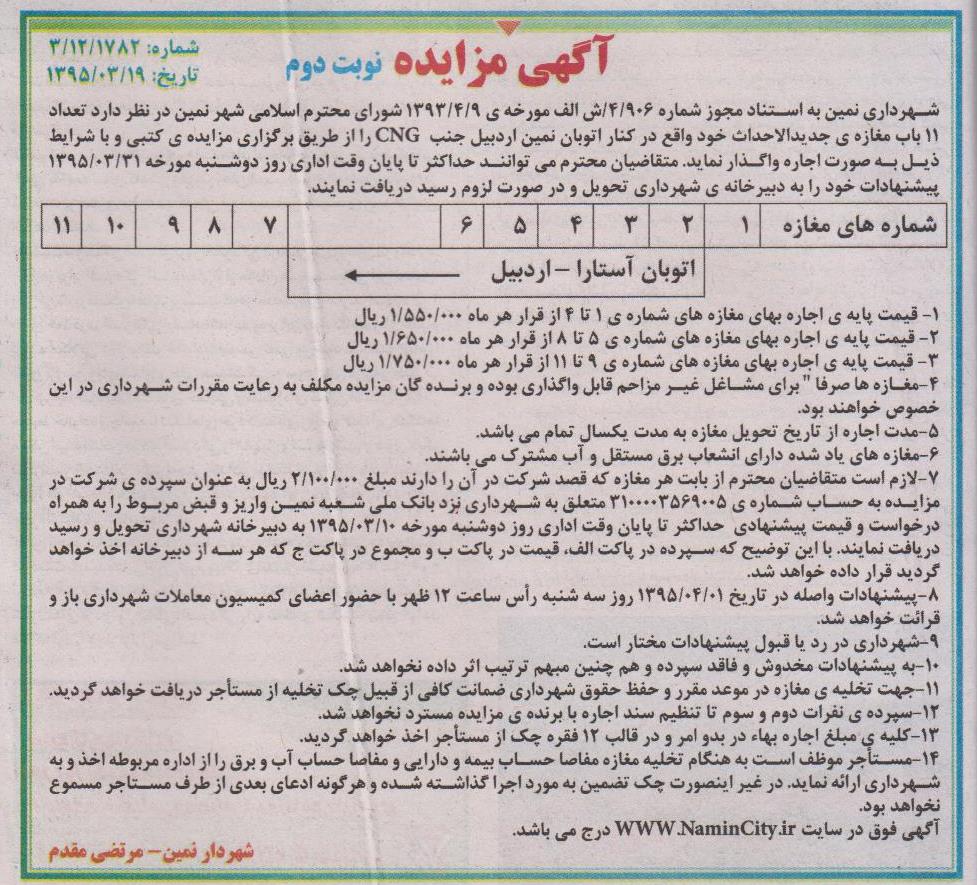 آگهی مزایده نوبت دوم
شماره: ۳/۱۲/۱۷۸۲
تاریخ: ۱۳۹۵/۰۳/۱۹
شهرداری نمین به استناد مجوز شماره ۴/۹۰۶/ش الف مورخه ی ۱۳۹۳/۴/۹ شورای محترم اسلامی شهر نمین در نظر دارد تعداد
۱۱ باب مغازه ی جدیدالاحداث خود واقع در کنار اتوبان نمین اردبیل جنب CNG را از طریق برگزاری مزایده ی کتبی و با شرایط
ذیل به صورت اجاره واگذار نماید. متقاضیان محترم می توانند حداکثر تا پایان وقت اداری روز دوشنبه مورخه ۱۳۹۵/۰۳/۳۱
پیشنهادات خود را به دبیرخانه ی شهرداری تحویل و در صورت لزوم رسید دریافت نمایند.
شماره های مغازه ۱ ۲ ۳ ۴ ۵ ۶ ۷ ۸ ۹ ۱۰ ۱۱
اتوبان آستارا –اردبیل
۱- قیمت پایه ی اجاره بهای مغازه های شماره ی ۱ تا ۴ از قرار هر ماه ۱/۵۵۰/۰۰۰ ریال
۲- قیمت پایه ی اجاره بهای مغازه های شماره ی ۵ تا ۸ از قرار هر ماه ۱/۶۵۰/۰۰۰ ریال
۳- قیمت پایه ی اجاره بهای مغازه های شماره ی ۹ تا ۱۱ از قرار هر ماه ۱/۷۵۰/۰۰۰ ریال
۴-مغازه ها صرفا " برای مشاغل غیر مزاحم قابل واگذاری بوده و برنده گان مزایده مکلف به رعایت مقررات شهرداری در این
خصوص خواهند بود.
۵-مدت اجاره از تاریخ تحویل مغازه به مدت یکسال تمام می باشد.
۶-مغازه های یاد شده دارای انشعاب برق مستقل و آب مشترک می باشند.
۷-لازم است متقاضیان محترم از بابت هر مغازه که قصد شرکت در آن را دارند مبلغ ۲/۱۰۰/۰۰۰ ریال به عنوان سپرده ی شرکت در
مزایده به حساب شماره ی ۳۱۰۰۰۰۳۵۶۹۰۰۵ متعلق به شهرداری نزد بانک ملی شعبه نمین واریز و قبض مربوط را به همراه
درخواست و قیمت پیشنهادی حداکثر تا پایان وقت اداری روز دوشنبه مورخه ۱۳۹۵/۰۳/۱۰ به دبیرخانه شهرداری تحویل و رسید
دریافت نمایند. با این توضیح که سپرده در پاکت الف، قیمت در پاکت ب و مجموع در پاکت ج که هر سه از دبیرخانه اخذ خواهد
گردید قرار داده خواهد شد.
۸-پیشنهادات واصله در تاریخ ۱۳۹۵/۰۴/۰۱ روز سه شنبه رأس ساعت ۱۲ ظهر با حضور اعضای کمیسیون معاملات شهرداری باز و
قرائت خواهد شد.
۹-شهرداری در رد یا قبول پیشنهادات مختار است.
۱۰-به پیشنهادات مخدوش و فاقد سپرده و هم چنین مبهم ترتیب اثر داده نخواهد شد.
۱۱-جهت تخلیه ی مغازه در موعد مقرر و حفظ حقوق شهرداری ضمانت کافی از قبیل چک تخلیه از مستأجر دریافت خواهد گردید.
۱۲-سپرده ی نفرات دوم و سوم تا تنظیم سند اجاره با برنده ی مزایده مسترد نخواهد شد.
۱۳-کلیه ی مبلغ اجاره بهاء در بدو امر و در قالب ۱۲ فقره چک از مستأجر اخذ خواهد گردید.
۱۴-مستأجر موظف است به هنگام تخلیه مغازه مفاصا حساب بیمه و دارایی و مفاصا حساب آب و برق را از اداره مربوطه اخذ و به
شهرداری ارائه نماید. در غیر اینصورت چک تضمین به مورد اجرا گذاشته شده و هرگونه ادعای بعدی از طرف مستاجر مسموع
نخواهد بود.
آگهی فوق در سایت WWW.NaminCity.ir درج می باشد.
شهردار نمین– مرتضی مقدم